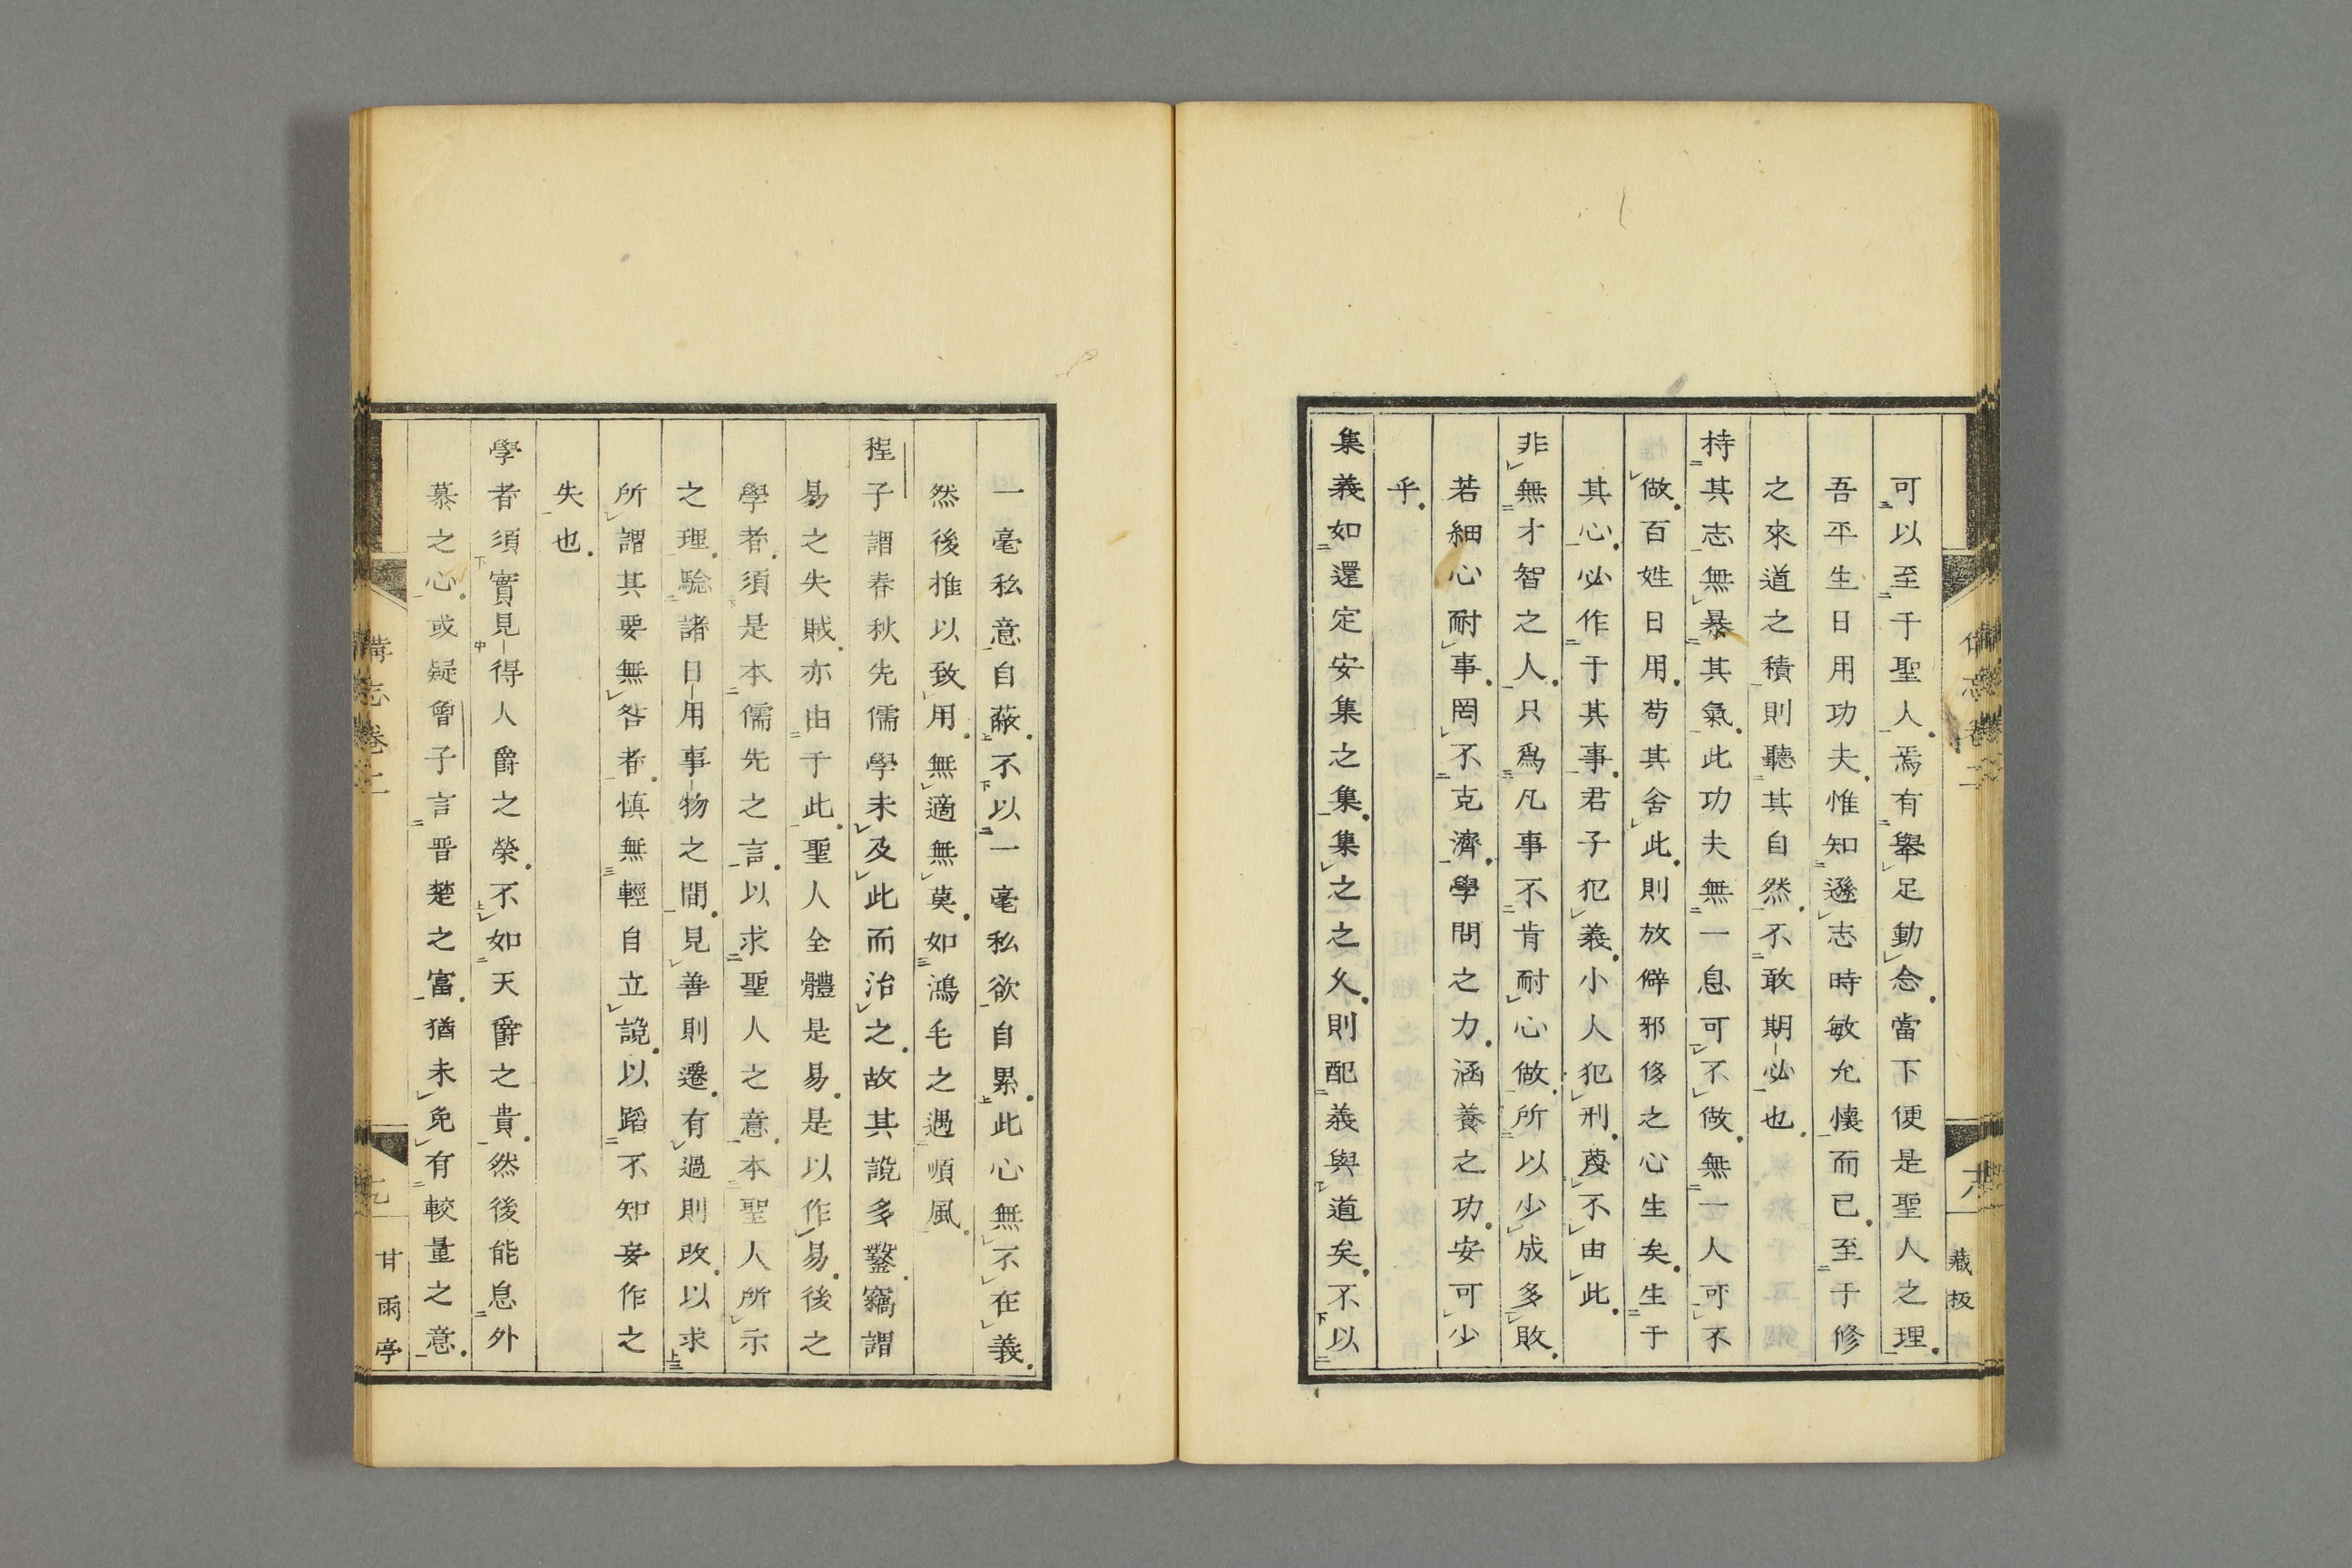 可以至于聖人焉有舉足動念當下便是聖人之理
吾平生日用功夫惟知遜志時敏允懷而已至于修
之來道之積則聽其自然不敢期必也
持其志無暴其氣此功夫無一息可不做無一人可不
做百姓日用苟其舍此則放僻邪侈之心生矣生于
其心必作于其事君子犯義小人犯刑蔑不由此
非無才智之人只爲凡事不肯耐心做所以少成多敗
若細心耐事罔不克濟學問之力涵養之功安可少
乎
集義如還定安集之集集之之久則配義與道矣不以
一毫私意自蔽不以一毫私欲自累此心無不在義
然後推以致用無適無莫如鴻毛之遇順風
程子謂春秋先儒學未及此而治之故其說多鑿竊謂
易之失賊亦由于此聖人全體是易是以作易後之
學者須是本儒先之言以求聖人之意本聖人所示
之理驗諸日用事物之間見善則遷有過則改以求
所謂其要無咎者愼無輕自立說以蹈不知妄作之
失也
學者須實見得人爵之榮不如天爵之貴然後能息外
慕之心或疑曾子言晋楚之富猶未免有較量之意
備志卷二
藏板
甘雨亭